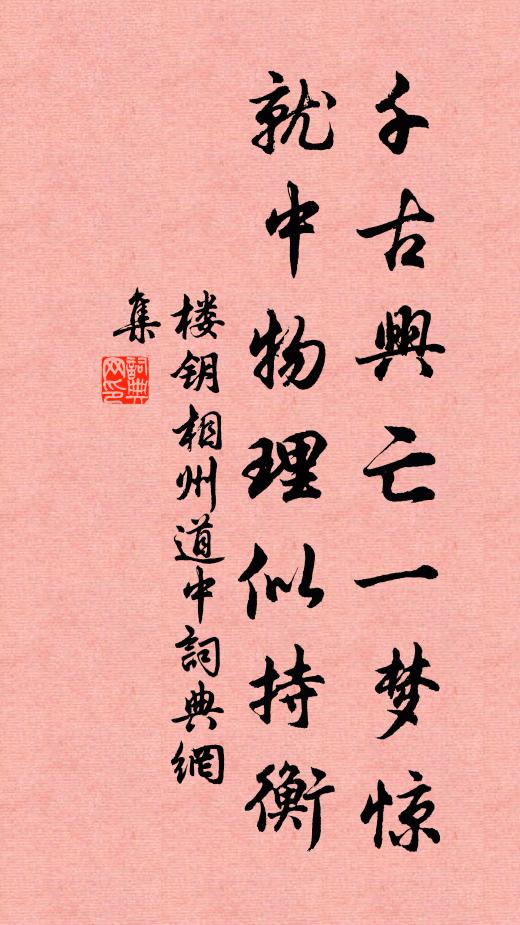 千古興亡一梦惊
就中物理似持衡
楼钥相州道中詞典網
集
詞典网印